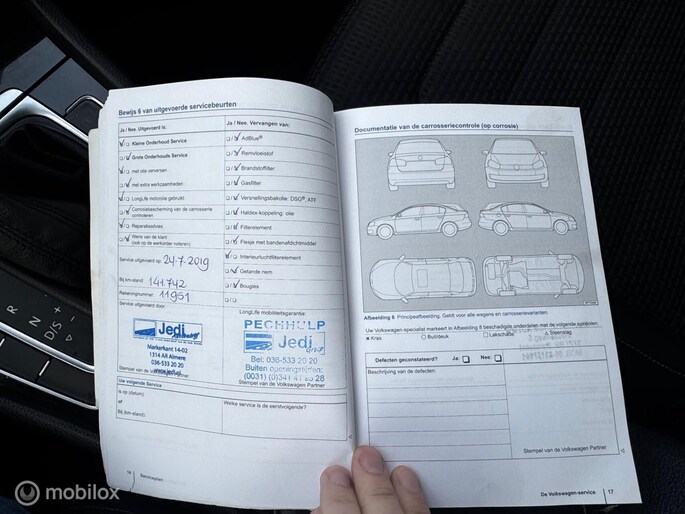 Bewijs 6 van uitgevoerde servicebeurten
Ja / Nee. Uitgevoerd is:
Kleine Onderhoud Service
Grote Onderhouds Service
met olie verversen
met extra werkzaamheden:
LongLife motorolie gebruikt
Corrosiebescherming van de carrosserie
controleren
Reparatieadvies
Wens van de klant
(ook op de werkorder noteren)
Service uitgevoerd op: 24-7-2019
Bij km-stand: 141.742
Rekeningnummer: 11951
Service uitgevoerd door:
Jedi
Markerkant 14-02
1314 AR Almere
036-533 20 20
www.jedi.nl
Uw volgende Service
is op (datum)
of
Bij (km-stand):
Ja / Nee. Vervangen van:
AdBlue®
Remvloeistof
Brandstoffilter
Gasfilter
Versnellingsbakolie: DSG®, ATF
Haldex-koppeling: olie
Filterelement
Flesje met bandenafdichtmiddel
Interieurluchtfilterelement
Getande riem
Bougies
LongLife mobiliteitsgarantie:
PECHHULP
Jedi
Bel: 036-533 20 20
Buiten openingstijden:
(0031) (0)341 41 28 28
Stempel van de Volkswagen Partner
Welke service is de eerstvolgende?
16
Serviceplan
Documentatie van de carrosseriecontrole (op corrosie)
Afbeelding 8 Principeafbeelding. Geldt voor alle wagens en carrosserievarianten.
Uw Volkswagen-specialist markeert in Afbeelding 8 beschadigde onderdelen met de volgende symbolen:
Kras
Buil/deuk
Lakschade
Steenslag
Defecten geconstateerd?
Ja:
Nee:
Beschrijving van de defecten:
Stempel van de Volkswagen Partner
De Volkswagen-service
17
R
N
D/S
mobilox